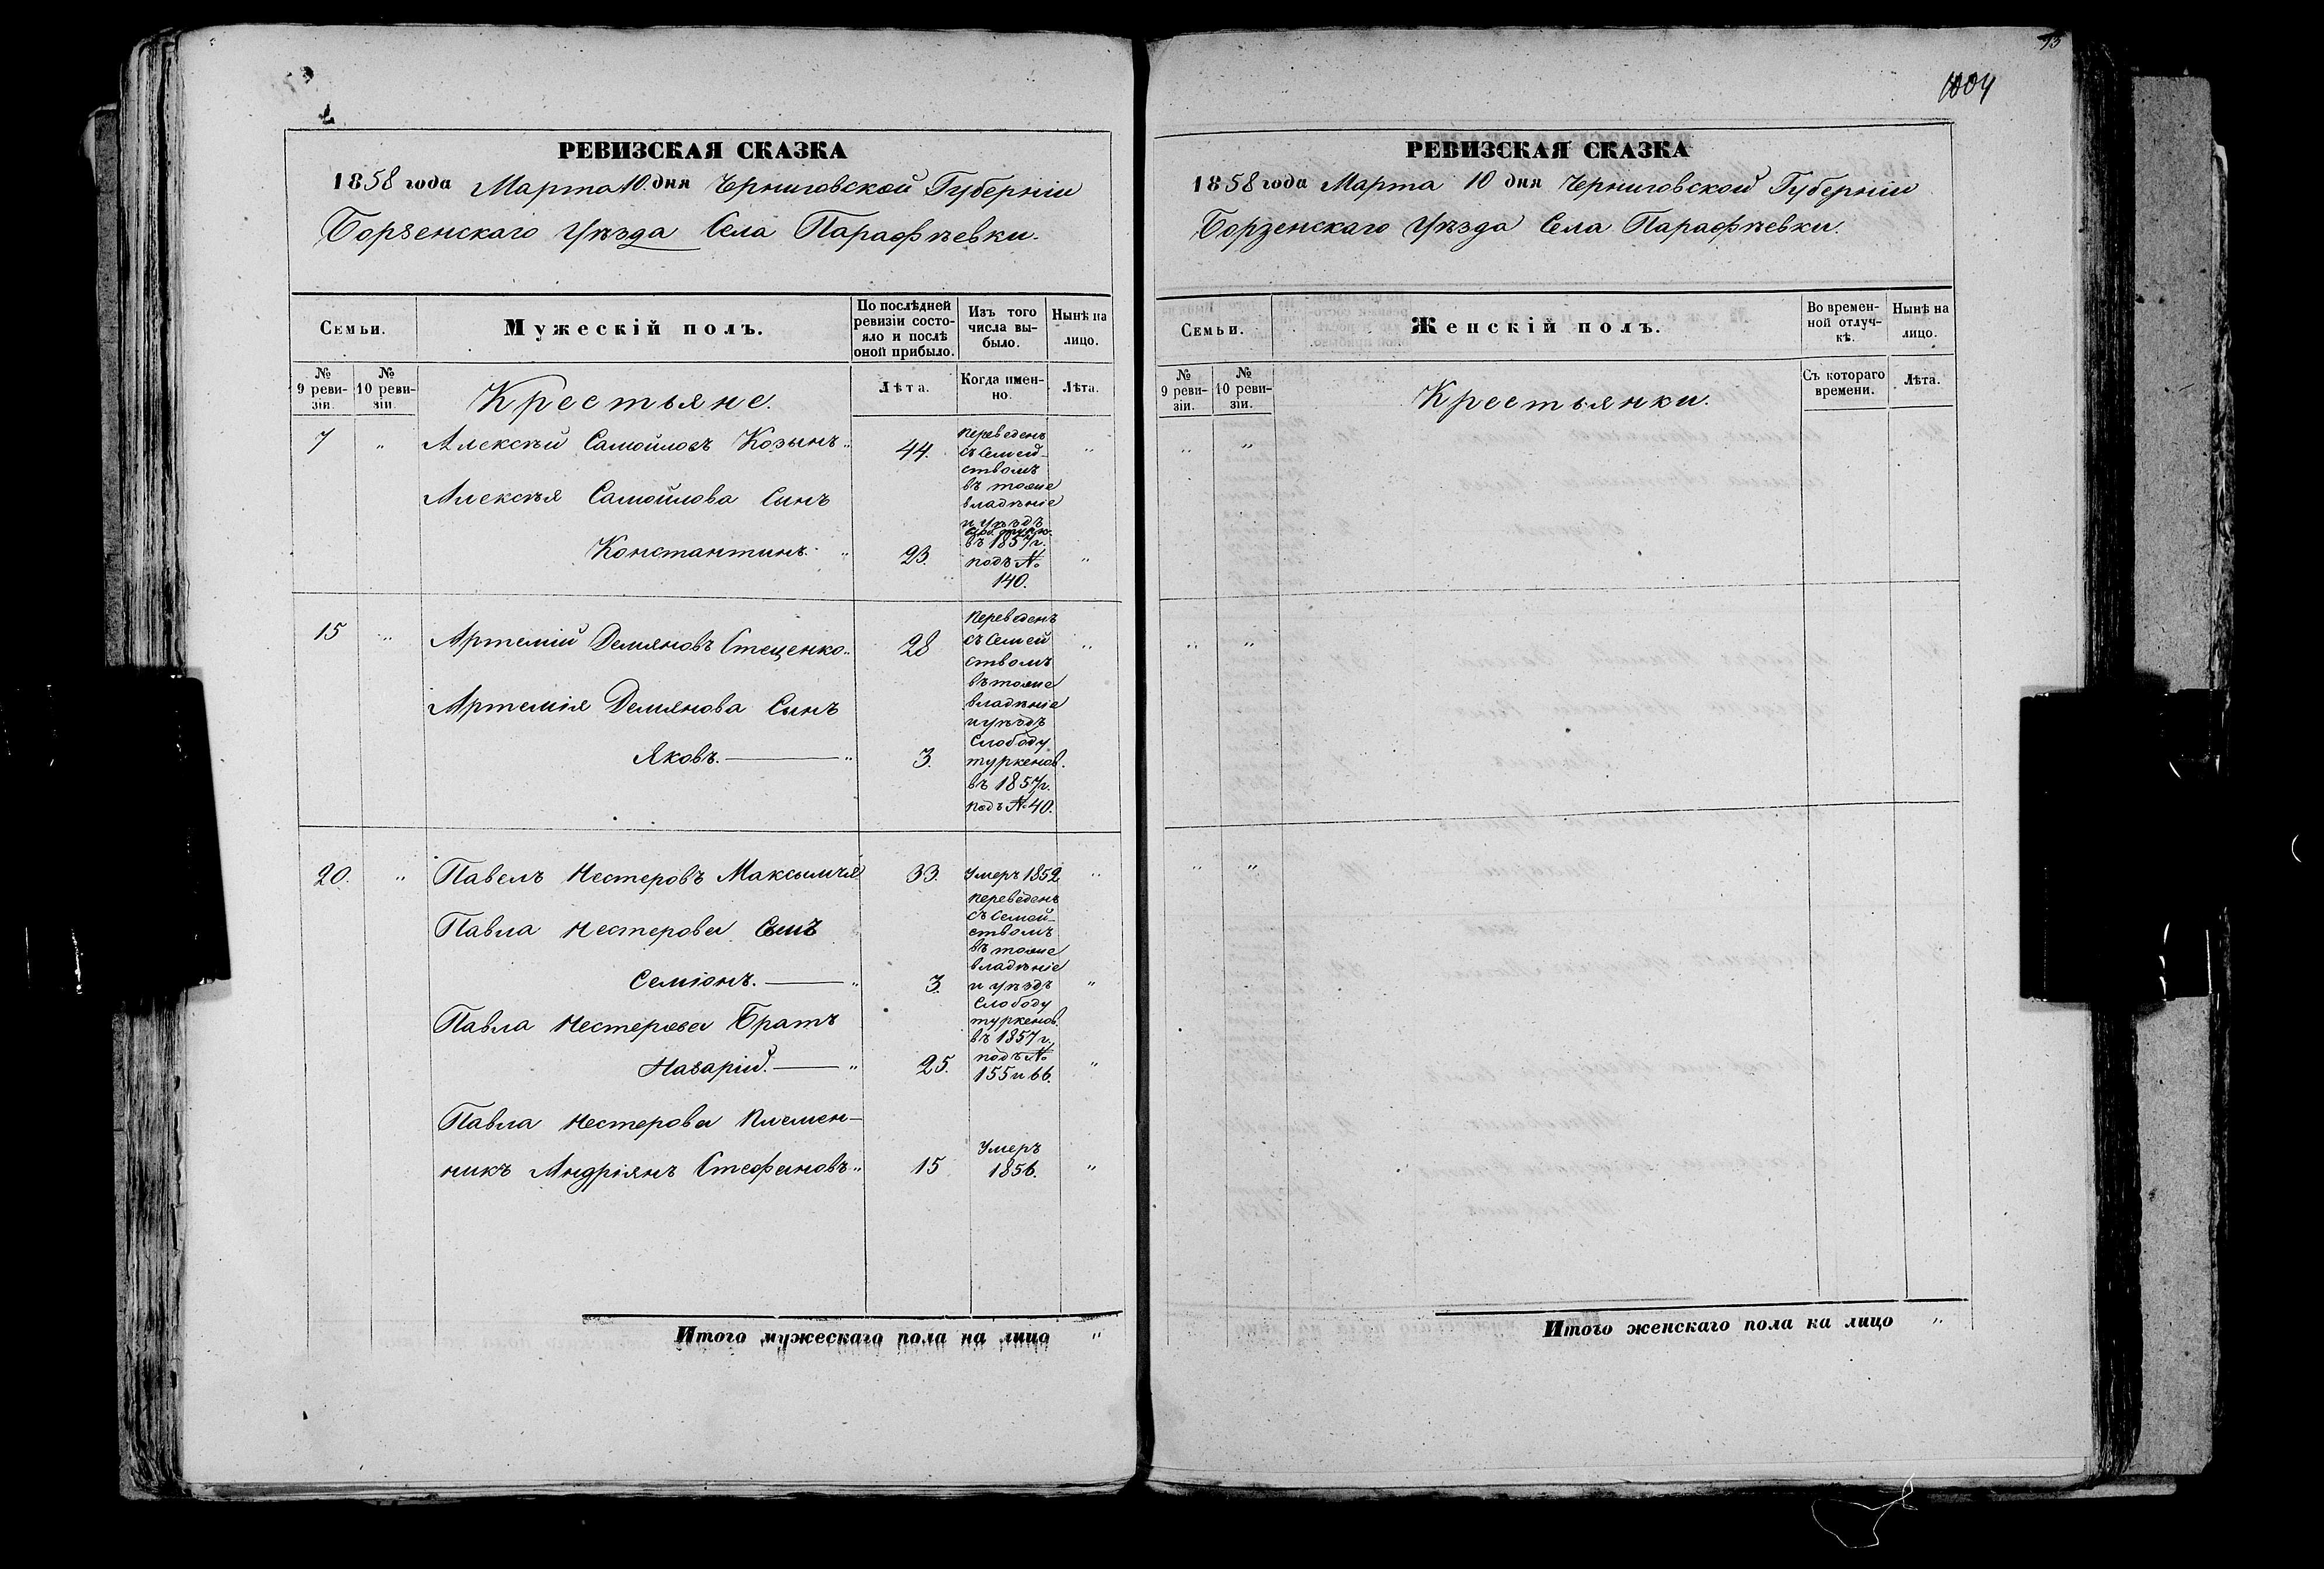 2
РЕВИЗСКАЯ СКАЗКА
1858 года Марта 10. дня Черниговской Губерніи
Борзенскаго Уѣзда Села Парафѣевки.
Семьи.
Мужескій полъ.
По послѣдней ревизіи состо-
яло и послѣ
оной прибыло.
Изъ того
числа вы-
было.
Нынѣ на
лицо.
№
9 реви-
зіи.
№
10 реви-
зіи.
Крестьяне.
Лѣта.
Когда имен-
но.
Лѣта.
7 " Алексѣй Самойловъ Козынъ " 44. "
Переведенъ
съ Семей-
ствомъ
въ тоже
владѣніе
и уѣздъ
въ 1857 г.
подъ №
140.
Алексѣя Самойлова Сынъ
Константинъ. " 23. "
15 " Артемій Демяновъ Стеценко " 28 "
Переведенъ
съ Семей
ствомъ
въ тоже
владѣніе
и уѣздъ
Слободу
туркенов.
въ 1857 г.
подъ № 40.
Артемія Демянова Сынъ
Яковъ. — " 3.
20. " Павелъ Нестеровъ 33. Умеръ 1852 "
Павла Нестерова Сынъ
Семіонъ. — " 3. "
Переведенъ
съ Семей-
ствомъ
въ тоже
владѣніе
и уѣздъ
Слободу
туркенов.
въ 1857 г.
подъ №
155 и 66.
Павла Нестерова Братъ
Назарій. — " 25. "
Павла Нестерова Племен-
никъ Андріянъ Стефановъ " 15 Умеръ
1856. "
Итого мужескаго пола на лицо "
1004
РЕВИЗСКАЯ СКАЗКА
1858 года Марта 10 дня Черниговской Губерніи
Борзенскаго Уѣзда Села Парафѣевки.
Семьи.
Женскій полъ.
Во времен-
ной отлуч-
кѣ.
Нынѣ на
лицо.
№
9 реви-
зіи.
№
10 реви-
зіи.
Крестьянки.
Съ котораго
времени.
Лѣта.
" "
" "
" "
Итого женскаго пола на лицо "